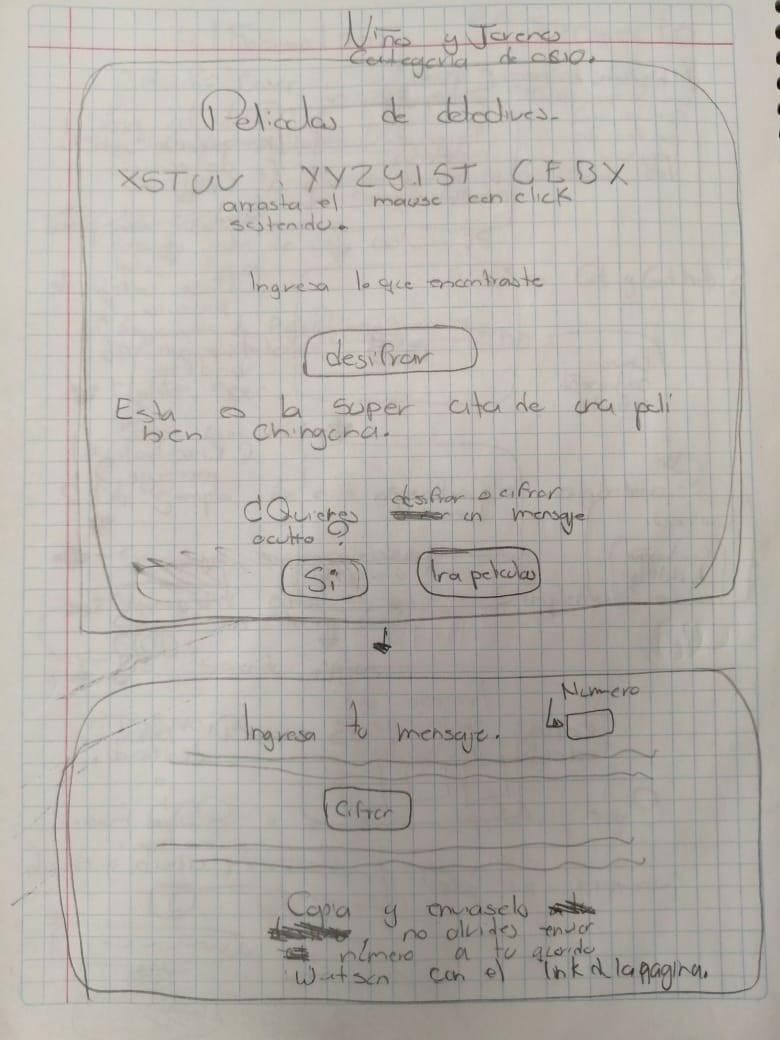 Niño y Jovenes
Categoria de osio.
Peliculas de detectives.
XSTUV . YYZY.IST CEBX
arrasta el mause con click
sostenido.
Ingresa lo que encontraste
desifrar
Esta es la super cita de una peli
bien chingona.
¿Quieres desifrar o cifrar
un mensaje
oculto?
Si
Ir a peliculas
Numero
Ingresa tu mensaje.
Cifrar
Copia y enviaselo
, no olvides enviar
número a tu querido
Watson con el link d la pagina.